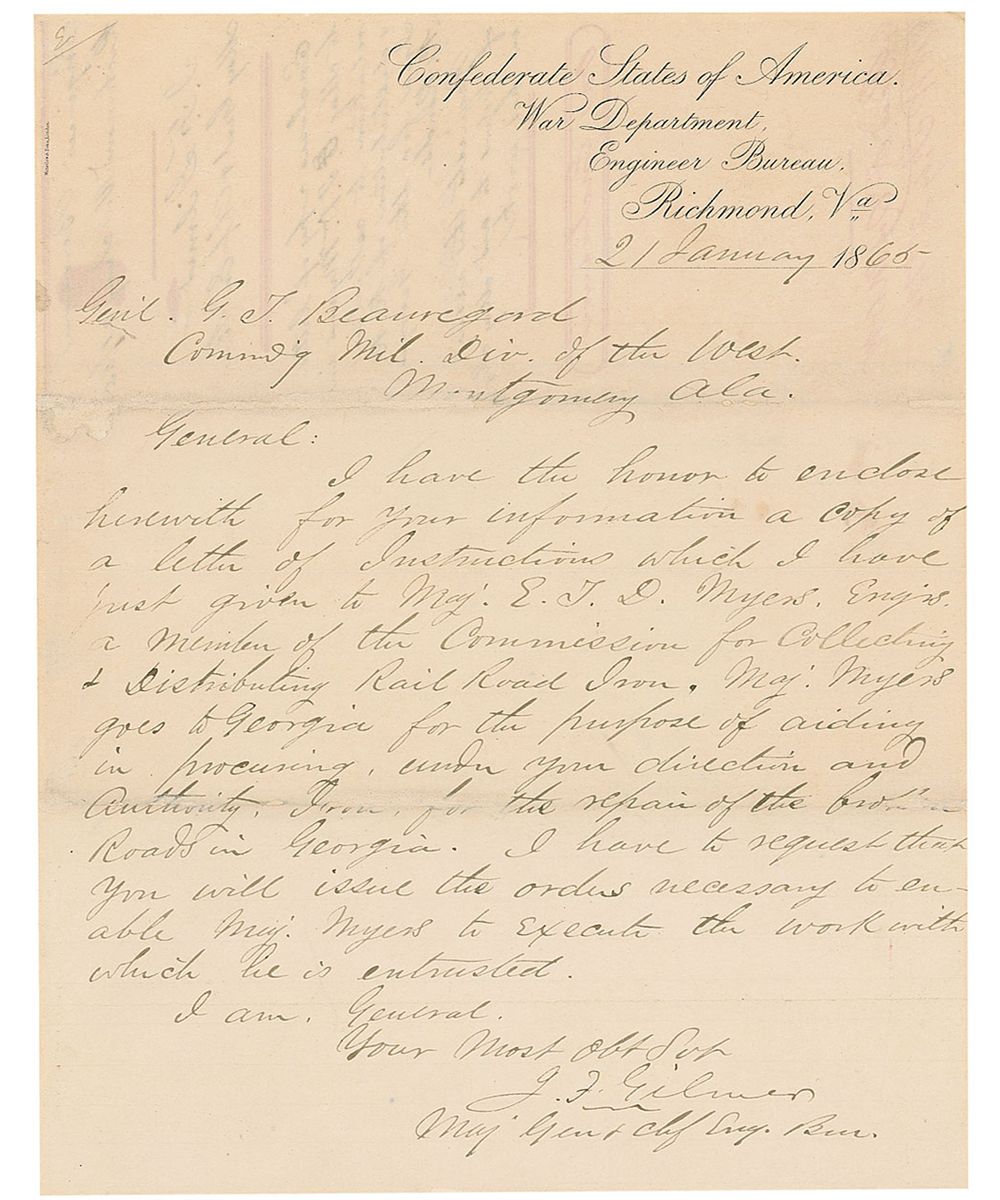 Confederate States of America.
War Department,
Engineer Bureau,
Richmond, Va
21 January 1865
Genl. G. T. Beauregard
Commd'g Mil. Div. of the West.
Montgomery Ala.
General:
I have the honor to enclose
herewith for your information a copy of
a letter of Instructions which I have
just given to Maj. E. T. D. Myers, Engrs.
a member of the Commission for Collecting
& Distributing Rail Road Iron. Maj. Myers
goes to Georgia for the purpose of aiding
in procuring, under your direction and
Authority, Iron, for the repair of the broken
Roads in Georgia. I have to request that
you will issue the orders necessary to en-
able Maj. Myers to execute the work with
which he is entrusted.
I am, General,
Your Most Obt Svt
J. F. Gilmer
Maj Gen & Chf Eng. Bur.